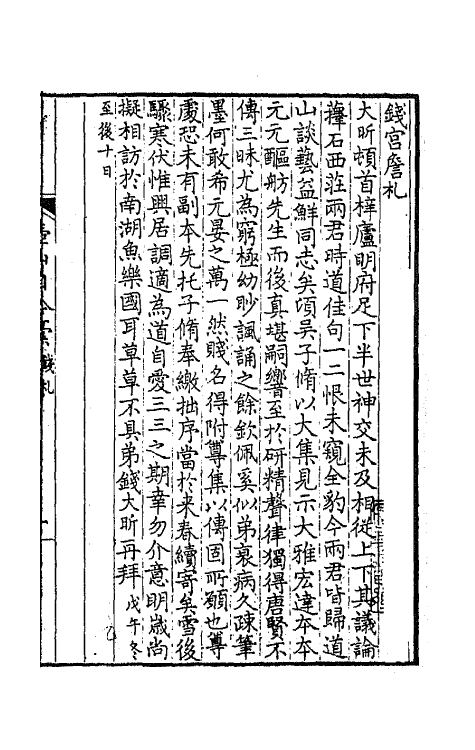 錢宮詹札
大昕頓首梓廬明府足下半世神交未及相從上下其議論
蘀石西莊兩君時道佳句一二恨未窺全豹今兩君皆歸道
山談藝益鮮同志矣頃吳子脩以大集見示大雅宏達本本
元元醧舫先生而後真堪嗣響至於研精聲律獨得唐賢不
傳三昧尤為窮極幼眇諷誦之餘欽佩奚似弟衰病久疎筆
墨何敢希元晏之萬一然賤名得附尊集以傳固所願也尊
處恐未有副本先托子脩奉繳拙序當於來春續寄矣雪後
驟寒伏惟興居調適為道自愛三三之期幸勿介意明歲尚
擬相訪於南湖魚樂國耳草草不具弟錢大昕再拜 戊午冬
至後十日
錢札